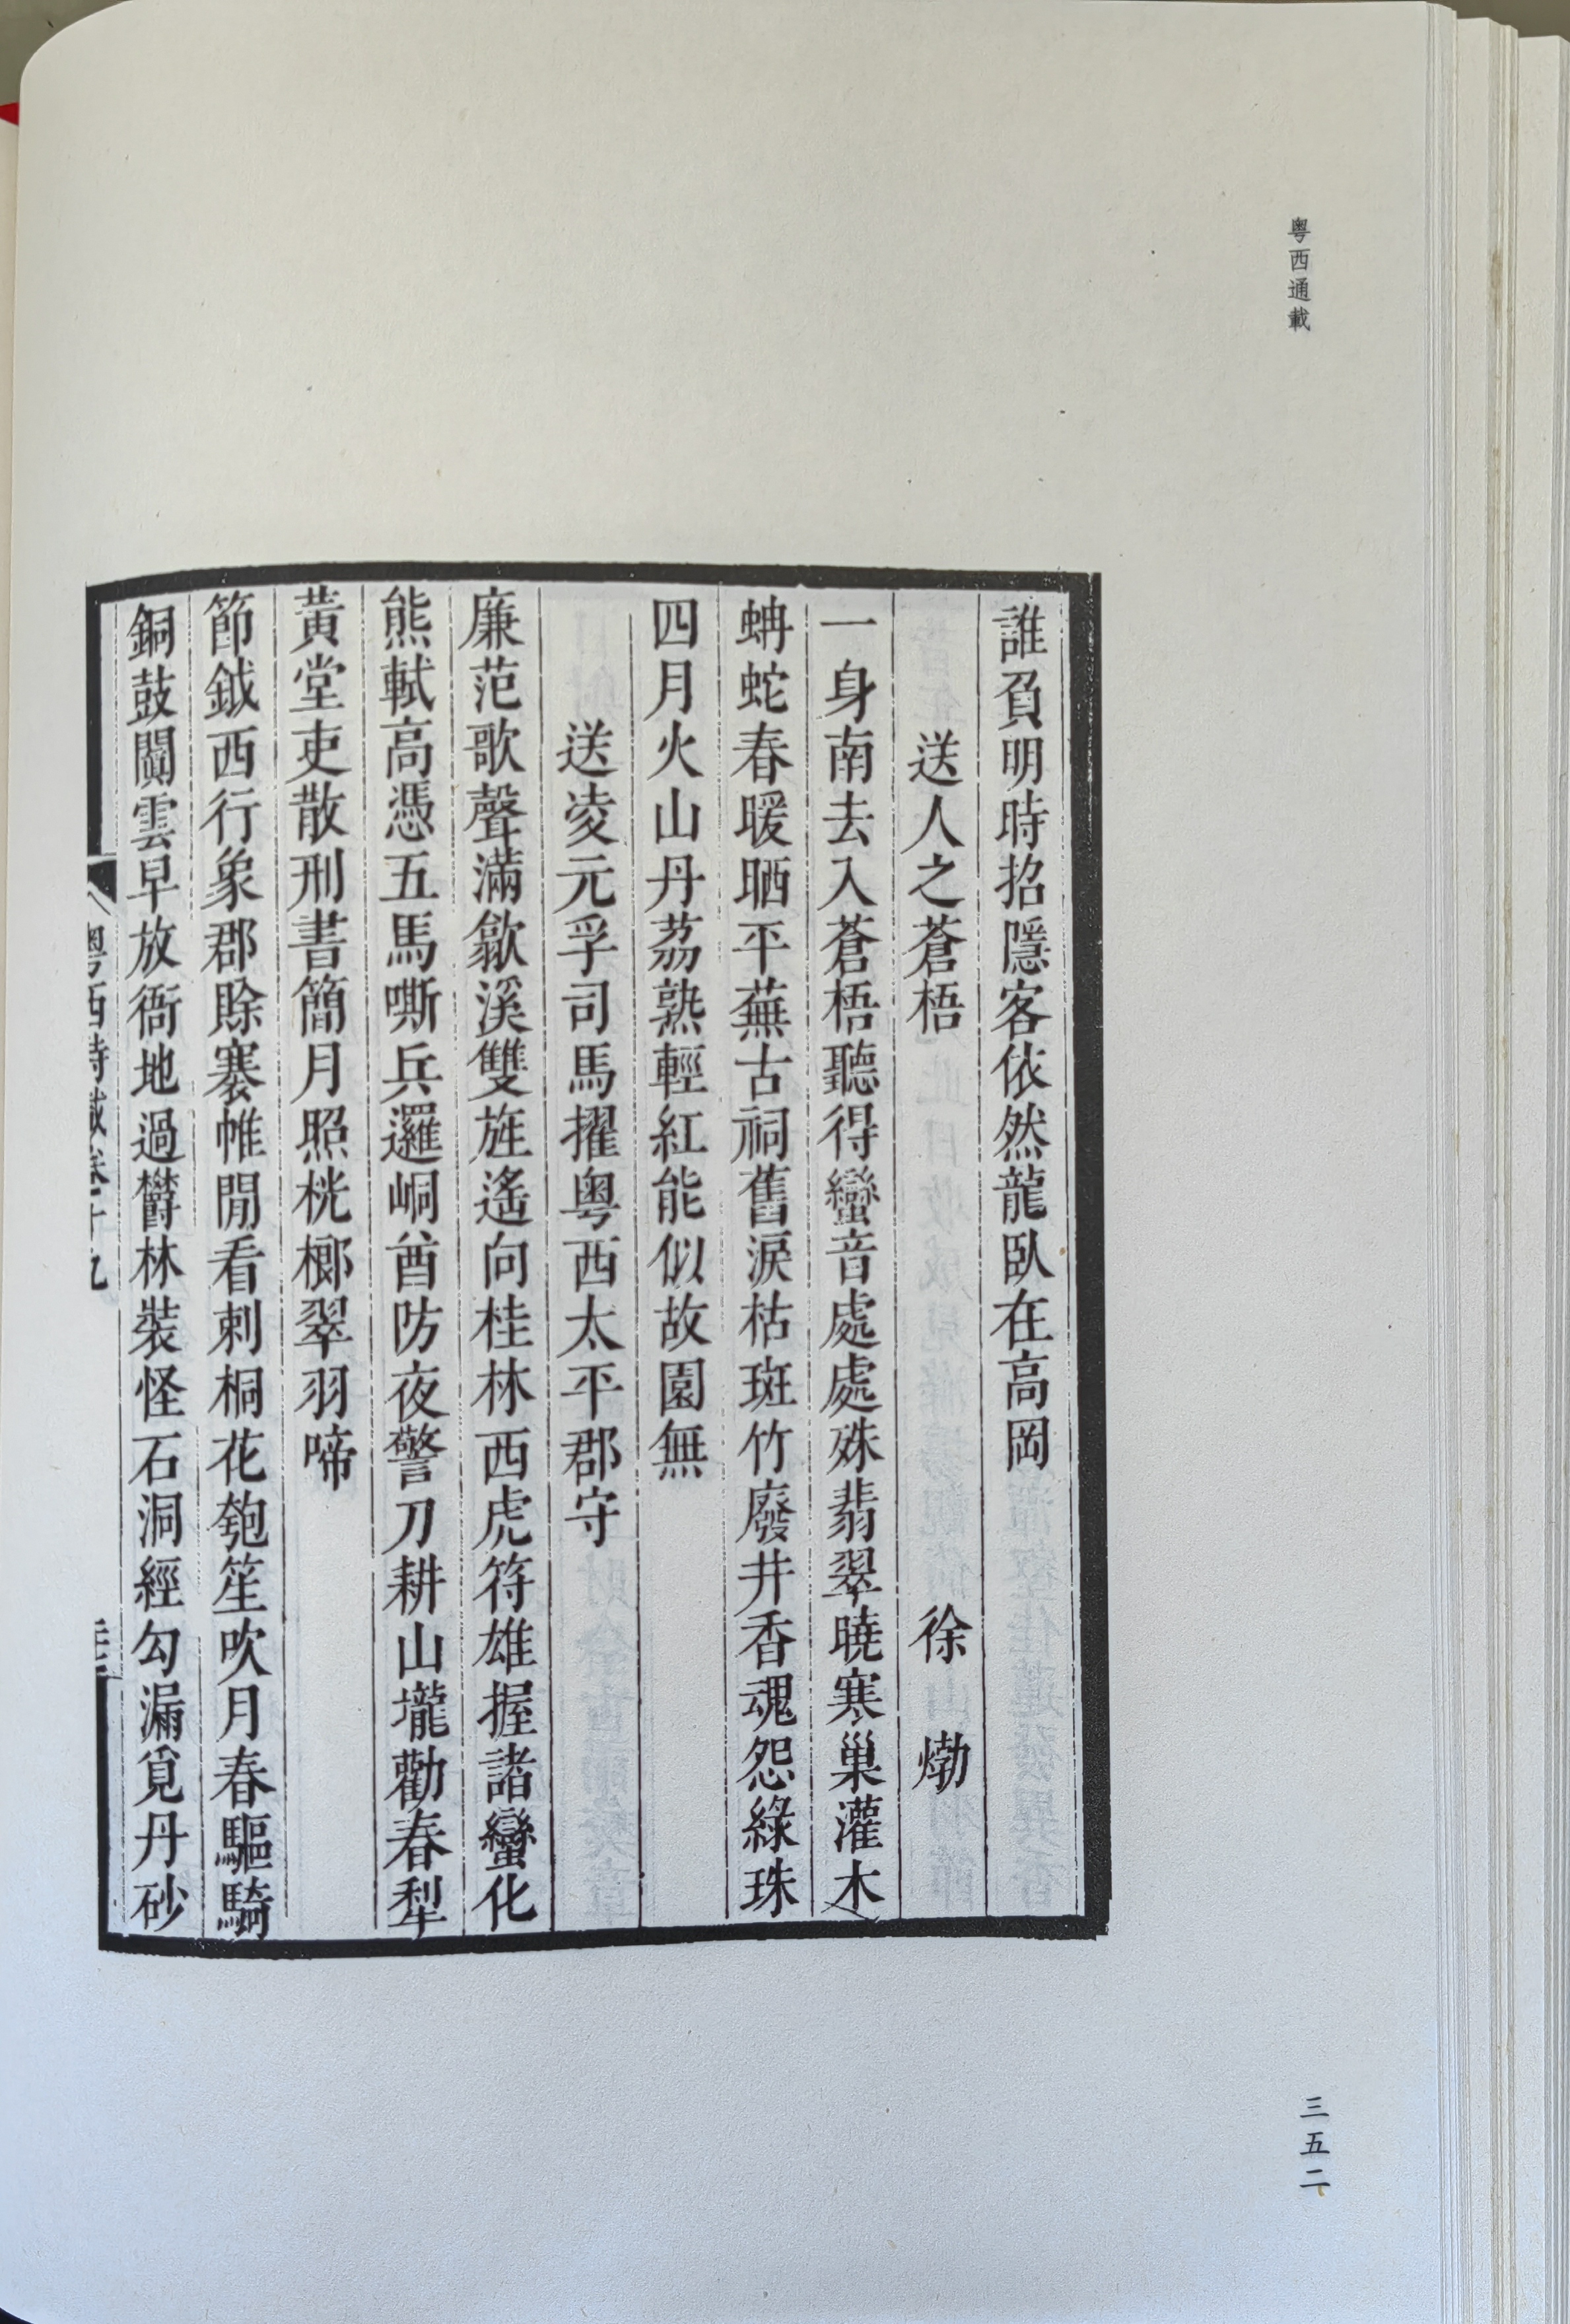 粤西通載
誰負明時招隱客依然龍臥在高岡
送人之蒼梧 徐 𤊹
一身南去入蒼梧聽得蠻音處處殊翡翠曉寒巢灌木
蚺蛇春暖晒平蕪古祠舊淚枯斑竹廢井香魂怨綠珠
四月火山丹荔熟輕紅能似故園無
送凌元孚司馬擢粤西太平郡守
廉范歌聲滿歙溪雙旌遙向桂林西虎符雄握諸蠻化
熊軾高憑五馬嘶兵邏峒酋防夜警刀耕山壠勸春犁
黃堂吏散刑書簡月照桄榔翠羽啼
節鉞西行象郡賒褰帷閒看刺桐花匏笙吹月春驅騎
銅鼓闐雲早放衙地過欝林裝怪石洞經勾漏覓丹砂
粤西詩載卷十九
三五二